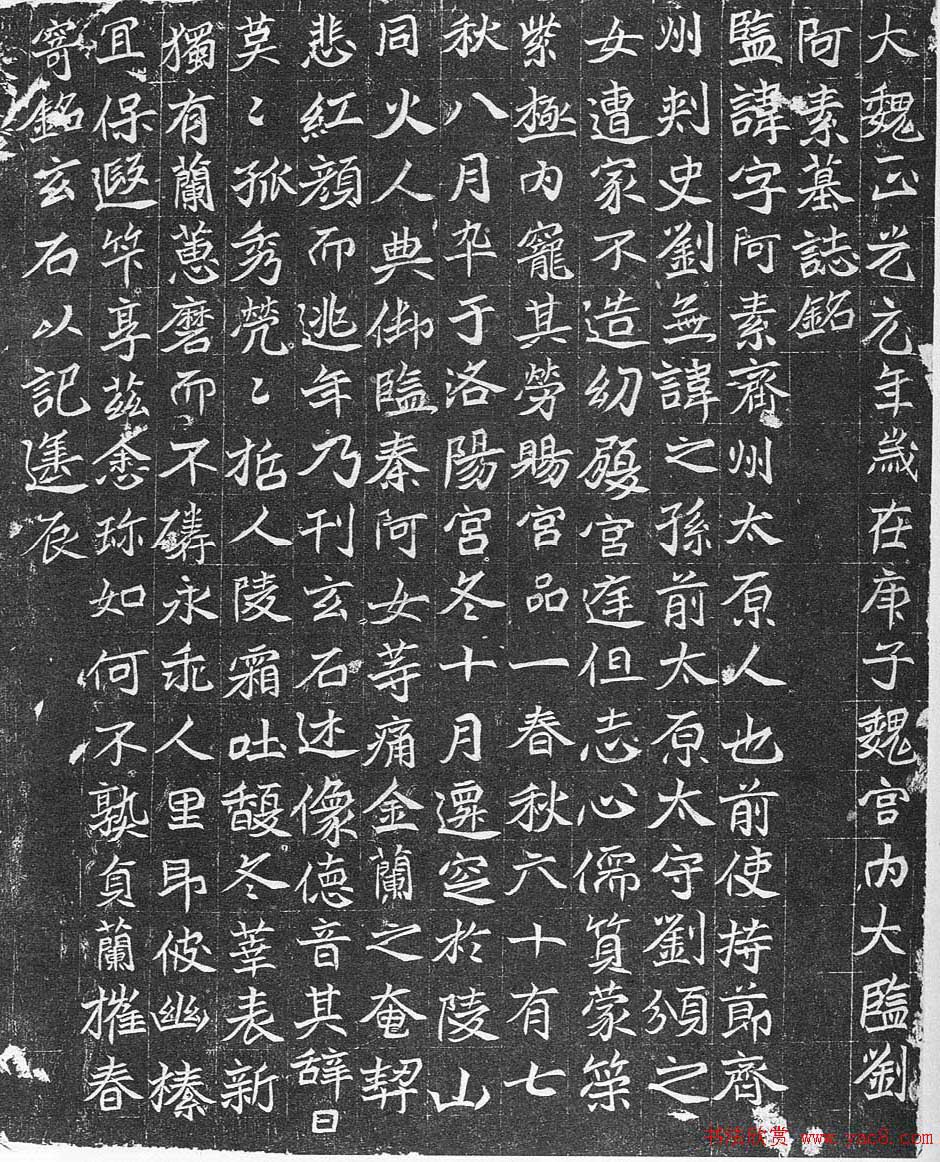 大魏正光元年歲在庚子魏宮內大監劉
阿素墓誌銘
監諱字阿素齊州太原人也前使持節齊
州刾史劉無諱之孫前太原太守劉頒之
女遭家不造幼履宮庭但志心儒質蒙策
紫極內寵其勞賜宮品一春秋六十有七
秋八月卒于洛陽宮冬十月遷窆於陵山
同火人典御監秦阿女等痛金蘭之奄契
悲紅顏而逃年乃刊玄石述像德音其辭曰
莫〻孤秀煢〻哲人陵霜吐馥冬華表新
獨有蘭蕙磨而不磷永乖人里即彼幽榛
宜保遐竿享茲悆珎如何不熟貟蘭摧春
寄銘玄石以記遷辰
书法欣赏 www.yac8.com